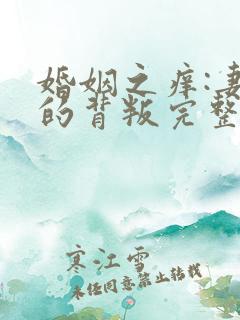 婚姻之痒:妻
的背叛完整
寒江雪
未经同意禁止转载